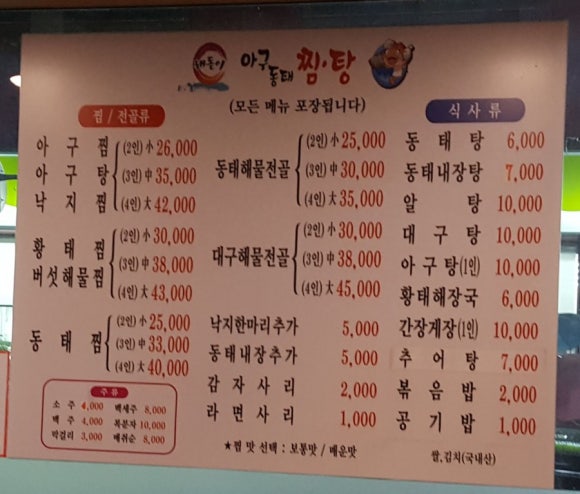 해돋이 아구동태 찜·탕
(모든 메뉴 포장됩니다)
찜 / 전골류
아구찜 (2인) 小 26,000
아구탕 (3인) 中 35,000
낙지찜 (4인) 大 42,000
황태찜 (2인) 小 30,000
버섯해물찜 (3인) 中 38,000
(4인) 大 43,000
동태찜 (2인) 小 25,000
(3인) 中 33,000
(4인) 大 40,000
주류
소주 4,000 백세주 8,000
맥주 4,000 복분자 10,000
막걸리 3,000 매취순 8,000
동태해물전골 (2인) 小 25,000
(3인) 中 30,000
(4인) 大 35,000
대구해물전골 (2인) 小 30,000
(3인) 中 38,000
(4인) 大 45,000
낙지한마리추가 5,000
동태내장추가 5,000
감자사리 2,000
라면사리 1,000
★찜 맛 선택 : 보통맛 / 매운맛
식사류
동태탕 6,000
동태내장탕 7,000
알탕 10,000
대구탕 10,000
아구탕(1인) 10,000
황태해장국 6,000
간장게장(1인) 10,000
추어탕 7,000
볶음밥 2,000
공기밥 1,000
쌀,김치(국내산)